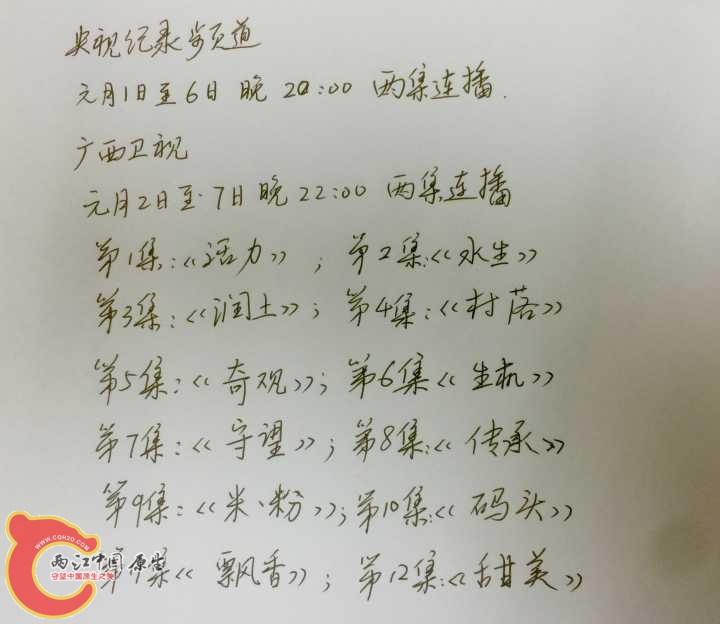 央视纪录频道
元月1日至6日 晚 20:00 两集连播.
广西卫视
元月2日至7日晚 22:00 两集连播
第1集:《活力》; 第2集:《水生》
第3集:《润土》; 第4集:《村落》
第5集:《奇观》; 第6集《生机》
第7集:《守望》; 第8集:《传承》
第9集:《米、粉》; 第10集:《码头》
集《飘香》; 第12集:《甜美》
WWW.CQH2O.COM
两江中国 原生
守望中国原生之美